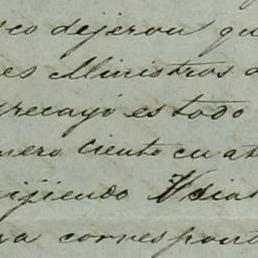 co dejeron qu
es Ministros d
recayó es todo
mero ciento cuat
igiendo
ra correspond